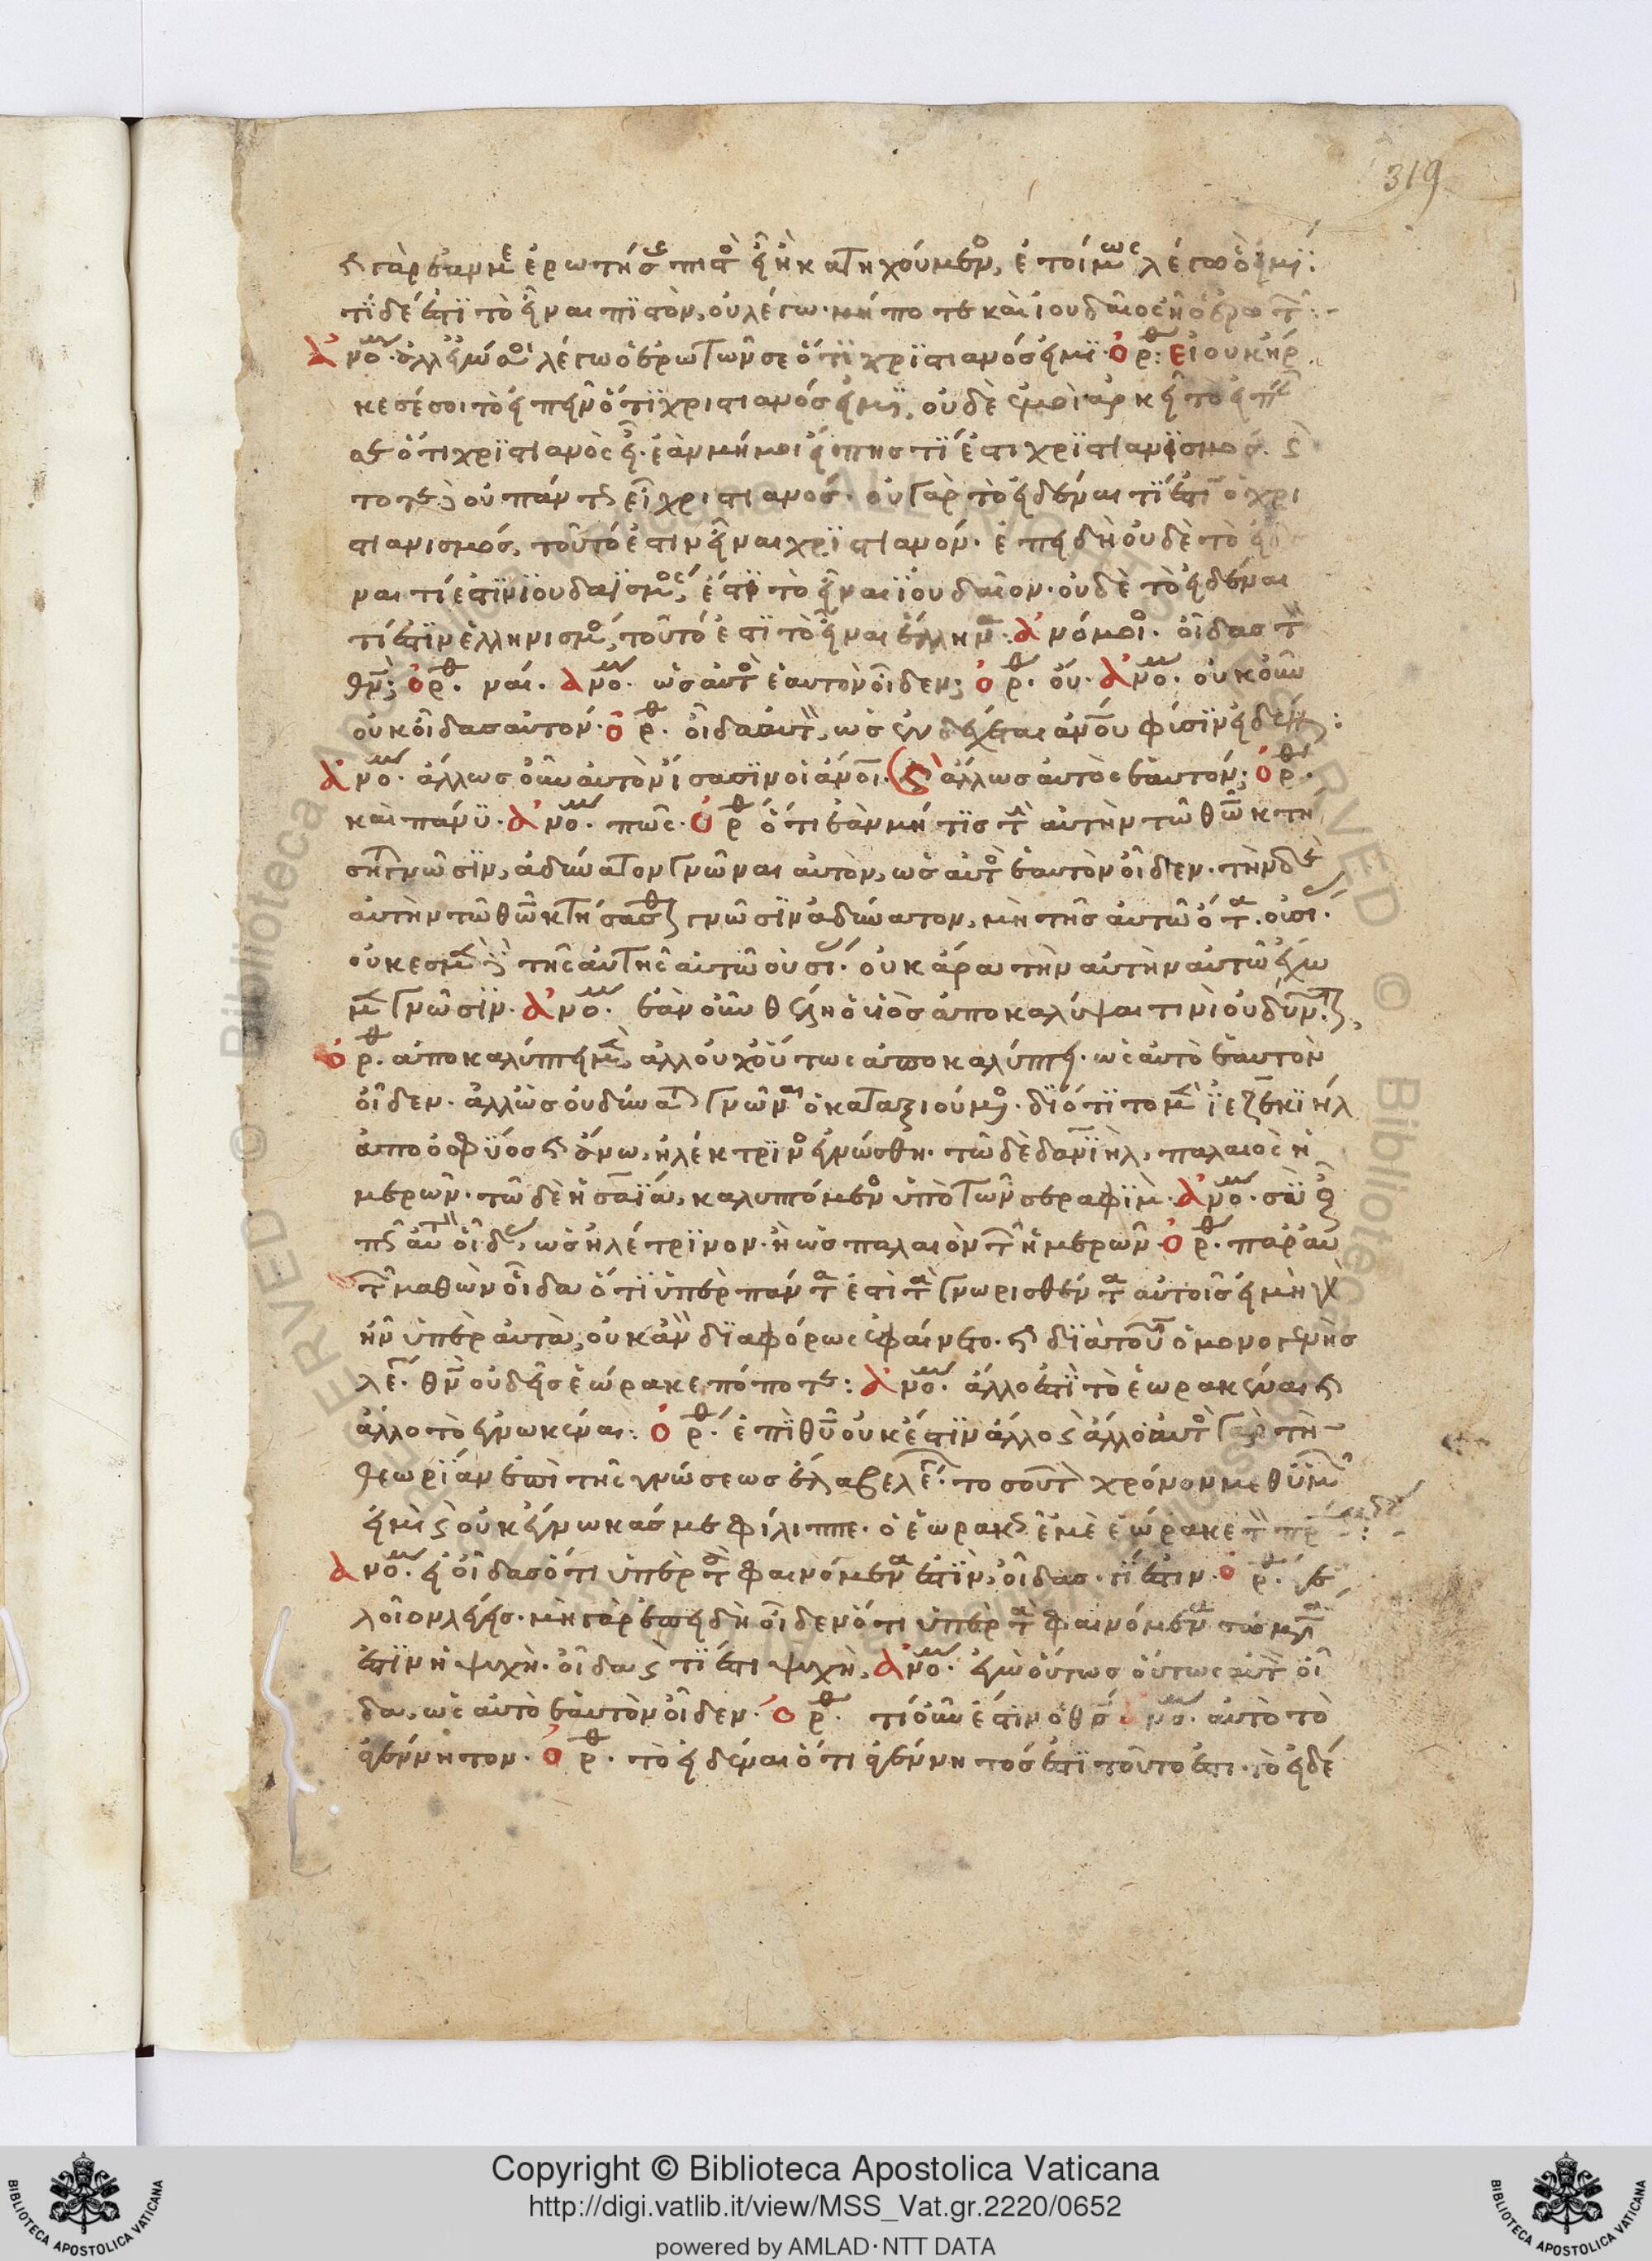 319
ϛ γὰρ ἐάν με ἐρωτήσῃς πιστὸς εἶ ἢ κατηχούμενος, ἑτοίμως λέγω ὃ εἰμί:
τί δέ ἐστι τὸ εἶναι πιστὸν, οὐ λέγω· μή ποτε καὶ ἰουδαῖος ἢ ὁ ἐρωτῶν:
ἀνό. ἀλλ' ἐγὼ λέγω ὁ ἐρωτῶν σε ὅτι χριστιανός εἰμι· ὀρθ: εἰ οὐκ ἤρ
κεσέ σοι τὸ εἰπεῖν ὅτι χριστιανός εἰμι, οὐδὲ ἐμοὶ ἀρκεῖ τὸ εἰπεῖν
ὅτι χριστιανὸς εἶ· ἐὰν μή μοι εἴπῃς τί ἐστι χριστιανισμός.
οὐ πάντως εἶ χριστιανός· οὐ γὰρ τὸ εἰδέναι τί ἐστιν ὁ χρι
στιανισμός, τοῦτό ἐστιν εἶναι χριστιανόν· ἐπειδὴ οὐδὲ τὸ εἰδέ
ναι τί ἐστιν ἰουδαϊσμός, ἐστὶ τὸ εἶναι ἰουδαῖον· οὐδὲ τὸ εἰδέναι
τί ἐστιν ἑλληνισμός, τοῦτό ἐστι τὸ εἶναι ἕλληνα. ἀνόμοι. οἶδας τὸν
θν; ὀρθ. ναί. ἀνό. ὡς αὐτὸς ἑαυτὸν οἶδεν; ὀρθ. οὔ. ἀνό. οὐκοῦν
οὐκ οἶδας αὐτόν. ὀρθ. οἶδα αὐτὸν, ὡς ἐνδέχεται ἀνου φύσιν εἰδέναι:
ἀνό. ἄλλως οὖν αὐτὸν ἴσασιν οἱ ἀνοι. ϛ ἄλλως αὐτὸς ἑαυτόν; ὀρθ.
καὶ πάνυ. ἀνό. πῶς. ὀρθ ὅτι ἐὰν μή τις τὴν αὐτὴν τῷ θῶ κτή
σηται γνῶσιν, ἀδύνατον γνῶναι αὐτὸν, ὡς αὐτὸς ἑαυτὸν οἶδεν. τὴν δὲ
αὐτὴν τῷ θῶ κτήσασθαι γνῶσιν ἀδύνατον, μὴ τῆς αὐτῷ ὄντα οὐσίας.
οὐκ ἐσμὲν δὲ τῆς αὐτῆς αὐτῷ οὐσίας. οὐκ ἄρα τὴν αὐτὴν αὐτῷ ἔχω
μεν γνῶσιν. ἀνό. ἐὰν οὖν θέλῃ ὁ υἱὸς ἀποκαλύψαι τινὶ οὐ δύναται,
ὀρθ. ἀποκαλύπτει μὲν, ἀλλ' οὐχ οὕτως ἀποκαλύπτει. ὡς αὐτὸς ἑαυτὸν
οἶδεν. ἀλλ' ὡς οὐ δύναται γνῶναι ὁ καταξιούμενος. διότι τῷ μὲν ἰεζεκιὴλ
ἀπὸ ὀσφύος ϛ ἄνω, ἠλέκτρινος ἐγνώσθη. τῷ δὲ δανιὴλ, παλαιὸς ἡ
μερῶν. τῷ δὲ ἡσαΐᾳ, καλυπτόμενος ὑπὸ τῶν σεραφίμ. ἀνό. σὺ
πῶς αὐτὸν οἶδας, ὡς ἠλέτρινον. ἢ ὡς παλαιὸν τῶν ἡμερῶν. ὀρθ. παρ' αὐ
τῶν μαθὼν οἶδα ὅτι ὑπὲρ πάντα ἐστὶ τὰ γνωρισθέντα αὐτοῖς εἰ μὴ γὰρ
ἦν ὑπὲρ αὐτὰ, οὐκ ἂν διαφόρως ἐφαίνετο. ϛ διὰ τοῦτο ὁ μονογενής
λέγει. θν οὐδεὶς ἑώρακε πόποτε: ἀνό. ἄλλο ἐστὶ τὸ ἑωρακέναι ϛ
ἄλλο τὸ ἐγνωκέναι: ὀρθ. ἐπὶ θυ οὐκ ἔστιν ἄλλο ϛ ἄλλο αὐτὸς γὰρ τὴν
θεωρίαν ἐπὶ τῆς γνώσεως ἔλαβε λέγων. τοσοῦτον χρόνον μεθ' ὑμῶν
εἰμὶ ϛ οὐκ ἔγνωκάς με φίλιππε. ὁ ἑωρακὼς ἐμὲ ἑώρακε τὸν πρα:
ἀνό. εἰ οἶδας ὅτι ὑπὲρ τὰ φαινόμενά ἐστιν, οἶδας τί ἐστιν. ὀρθ. γε
λοῖον λέγεις. μὴ γὰρ ἐπειδὴ οἶδεν ὅτι ὑπὲρ τὰ φαινόμενα
ἐστιν ἡ ψυχή. οἶδα ϛ τί ἐστι ψυχὴ, ἀνό. ἐγὼ οὕτως οὕτως αὐτὸν οἶ
δα, ὡς αὐτὸς ἑαυτὸν οἶδεν. ὀρθ. τί οὖν ἐστιν ὁ θς ἀνό. αὐτὸ τὸ
ἀγέννητον. ὀρθ. τὸ εἰδέναι ὅτι ἀγέννητός ἐστι τοῦτο ἐστι. τὸ εἰδέ
Copyright © Biblioteca Apostolica Vaticana
http://digi.vatlib.it/view/MSS_Vat.gr.2220/0652
powered by AMLAD·NTT DATA
BIBLIOTECA APOSTOLICA VATICANA
BIBLIOTECA APOSTOLICA VATICANA